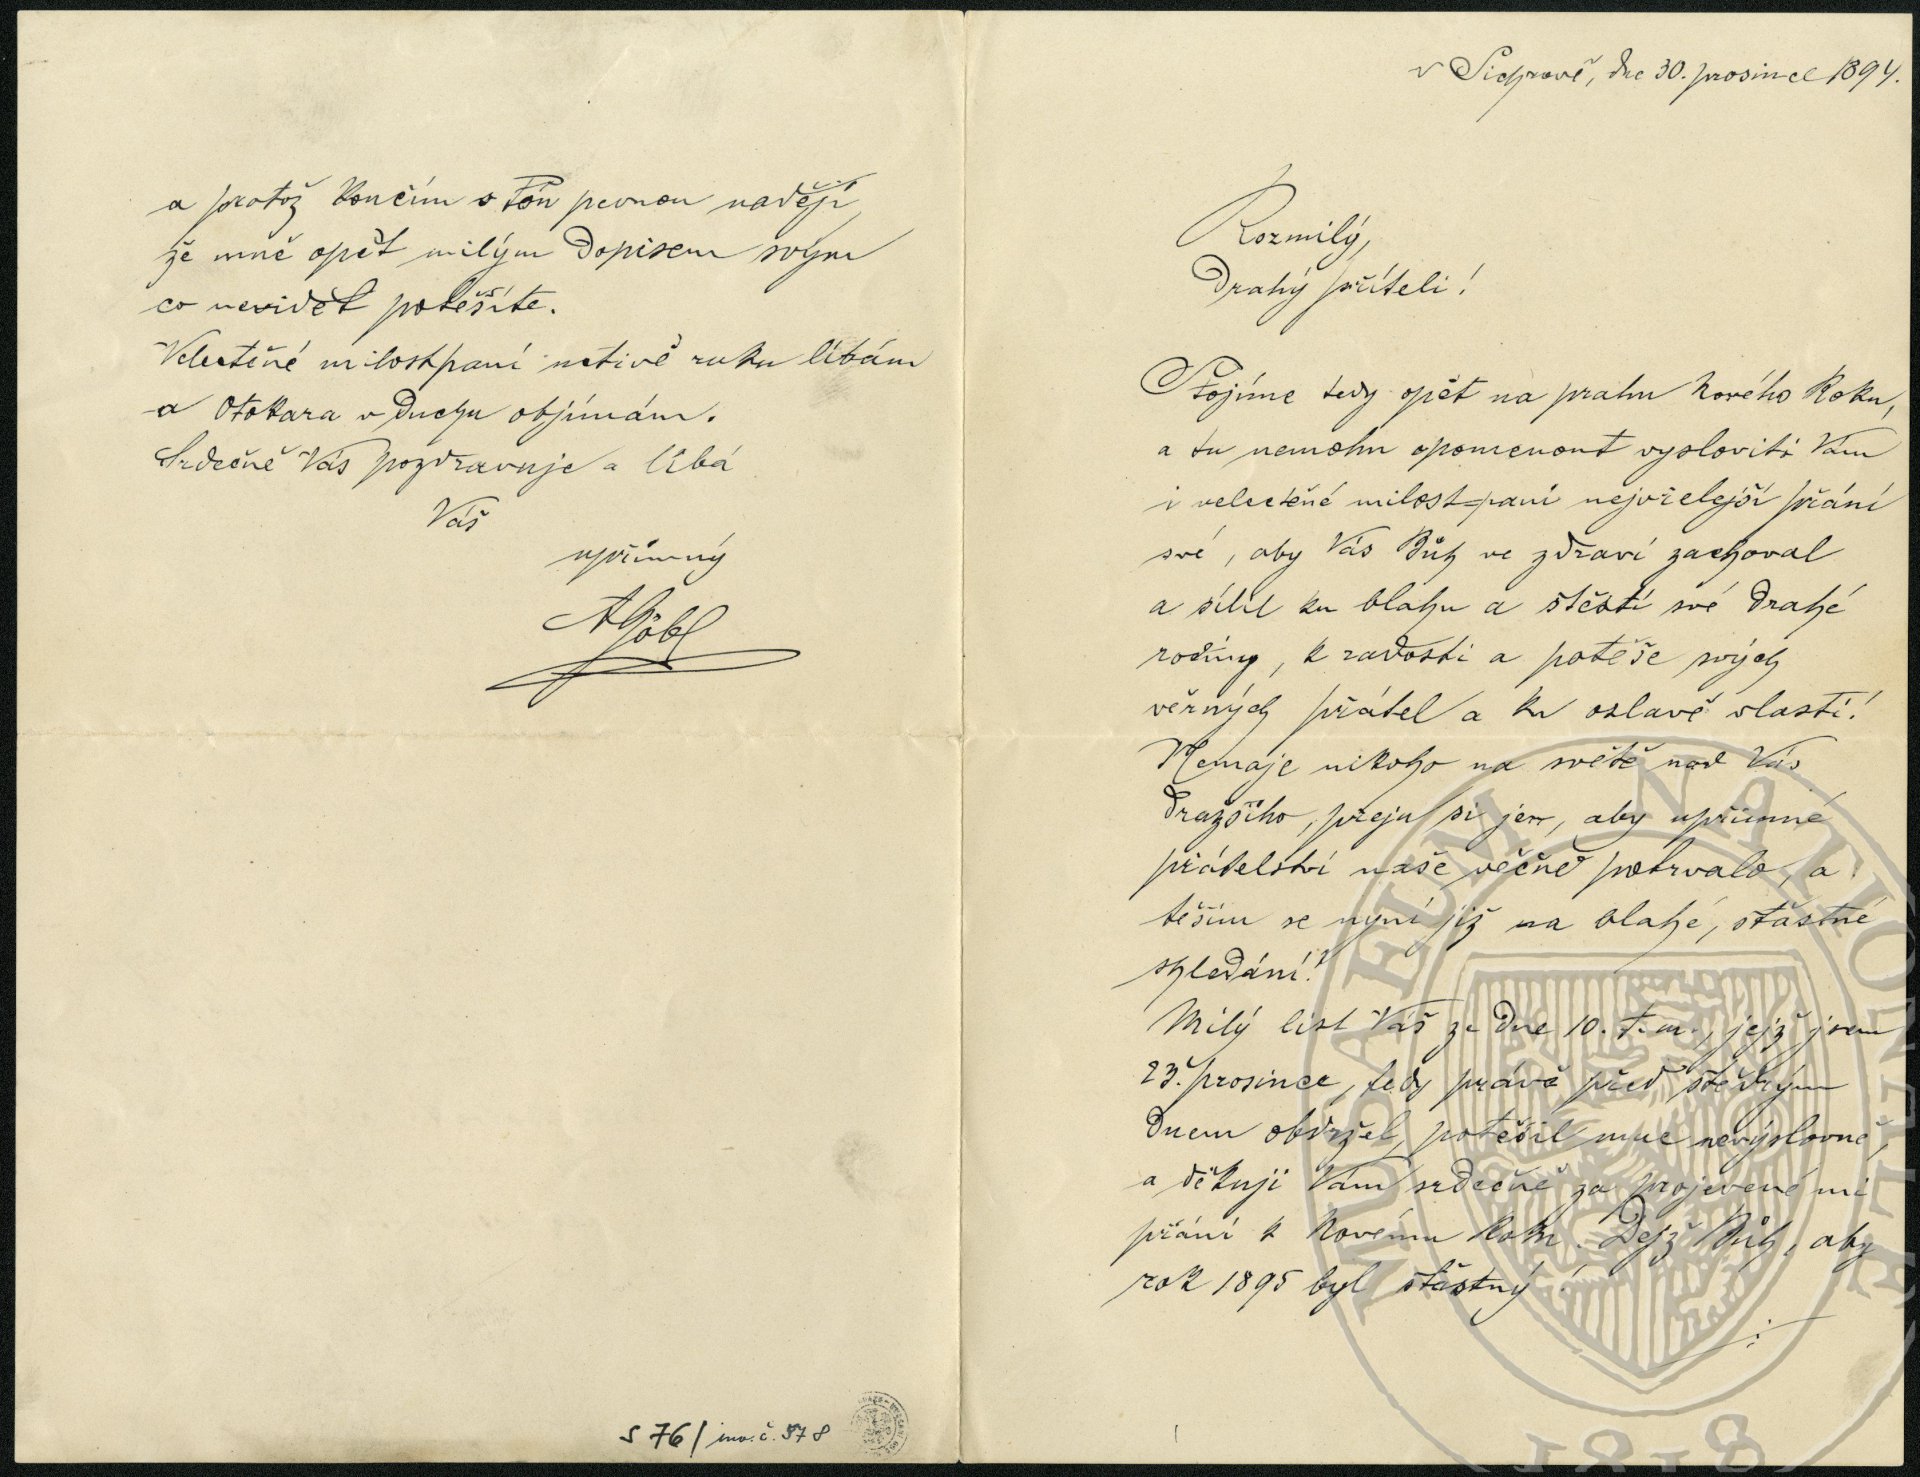 v Sichrově, dne 30. prosince 1894.
Rozmilý,
Drahý příteli!
Stojíme tedy opět na prahu Nového Roku,
a tu nemohu opomenout vysloviti Vám
i velectěné milost=paní nejvřelejší přání
své, aby Vás Bůh ve zdraví zachoval
a sílil ku blahu a štěstí své drahé
rodiny, k radosti a potěše svých
věrných přátel a ku oslavě vlasti!
Nemaje nikoho na světě nad Vás
dražšího, přeju si jen, aby upřímné
přátelství naše věčně potrvalo, a
těším se nyní již na blahé, šťastné
shledání!
Milý list Váš ze dne 10. t. m., jejž jsem
23. prosince, tedy právě před štědrým
dnem obdržel, potěšil mne nevýslovně,
a děkuji Vám srdečně za projevené mi
přání k Novému Roku. Dejž Bůh, aby
rok 1895 byl šťastný!
a protož končím s tou pevnou nadějí,
že mně opět milým dopisem svým
co nevidět potěšíte.
Velectěné milostpaní uctivě ruku líbám
a Otokara v duchu objímám.
Srdečně Vás pozdravuje a líbá
Váš
upřímný
AGöbl
S 76/ inv. č. 578
MUSAEUM NATIONALE
1818